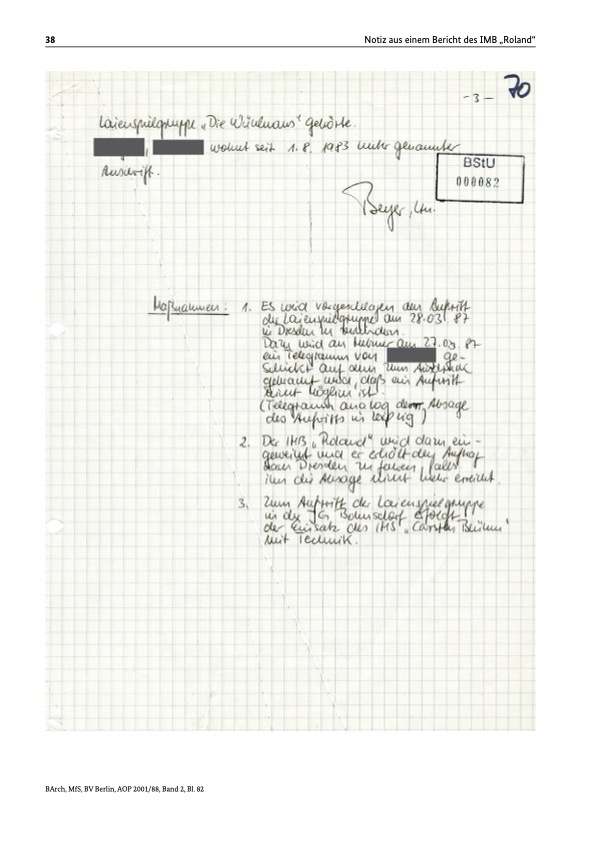 38
Notiz aus einem Bericht des IMB „Roland“
70
- 3 -
Laienspielgruppe „Die Wühlmaus“ gehörte.
, wohnt seit 1.8.1983 unter genannter
Anschrift.
BStU
000082
Beyer, Ltn.
Maßnahmen: 1. Es wird vorgeschlagen den Auftritt
der Laienspielgruppe am 28.03.87
in Dresden zu verhindern.
Dazu wird am 27.03.87
ein Telegramm von ge-
schickt auf dem zum Ausdruck
gebracht wird, daß ein Auftritt
nicht möglich ist.
(Telegramm analog der Absage
des Auftritts in Leipzig)
2. Der IMB „Roland“ wird dazu ein-
geweiht und er erhält den Auftrag
nach Dresden zu fahren, falls
ihn die Absage nicht mehr erreicht.
3. Zum Auftritt der Laienspielgruppe
in der JG Bohnsdorf erfolgt
der Einsatz des IMS „Carsten
mit Technik.
BArch, MfS, BV Berlin, AOP 2001/88, Band 2, Bl. 82